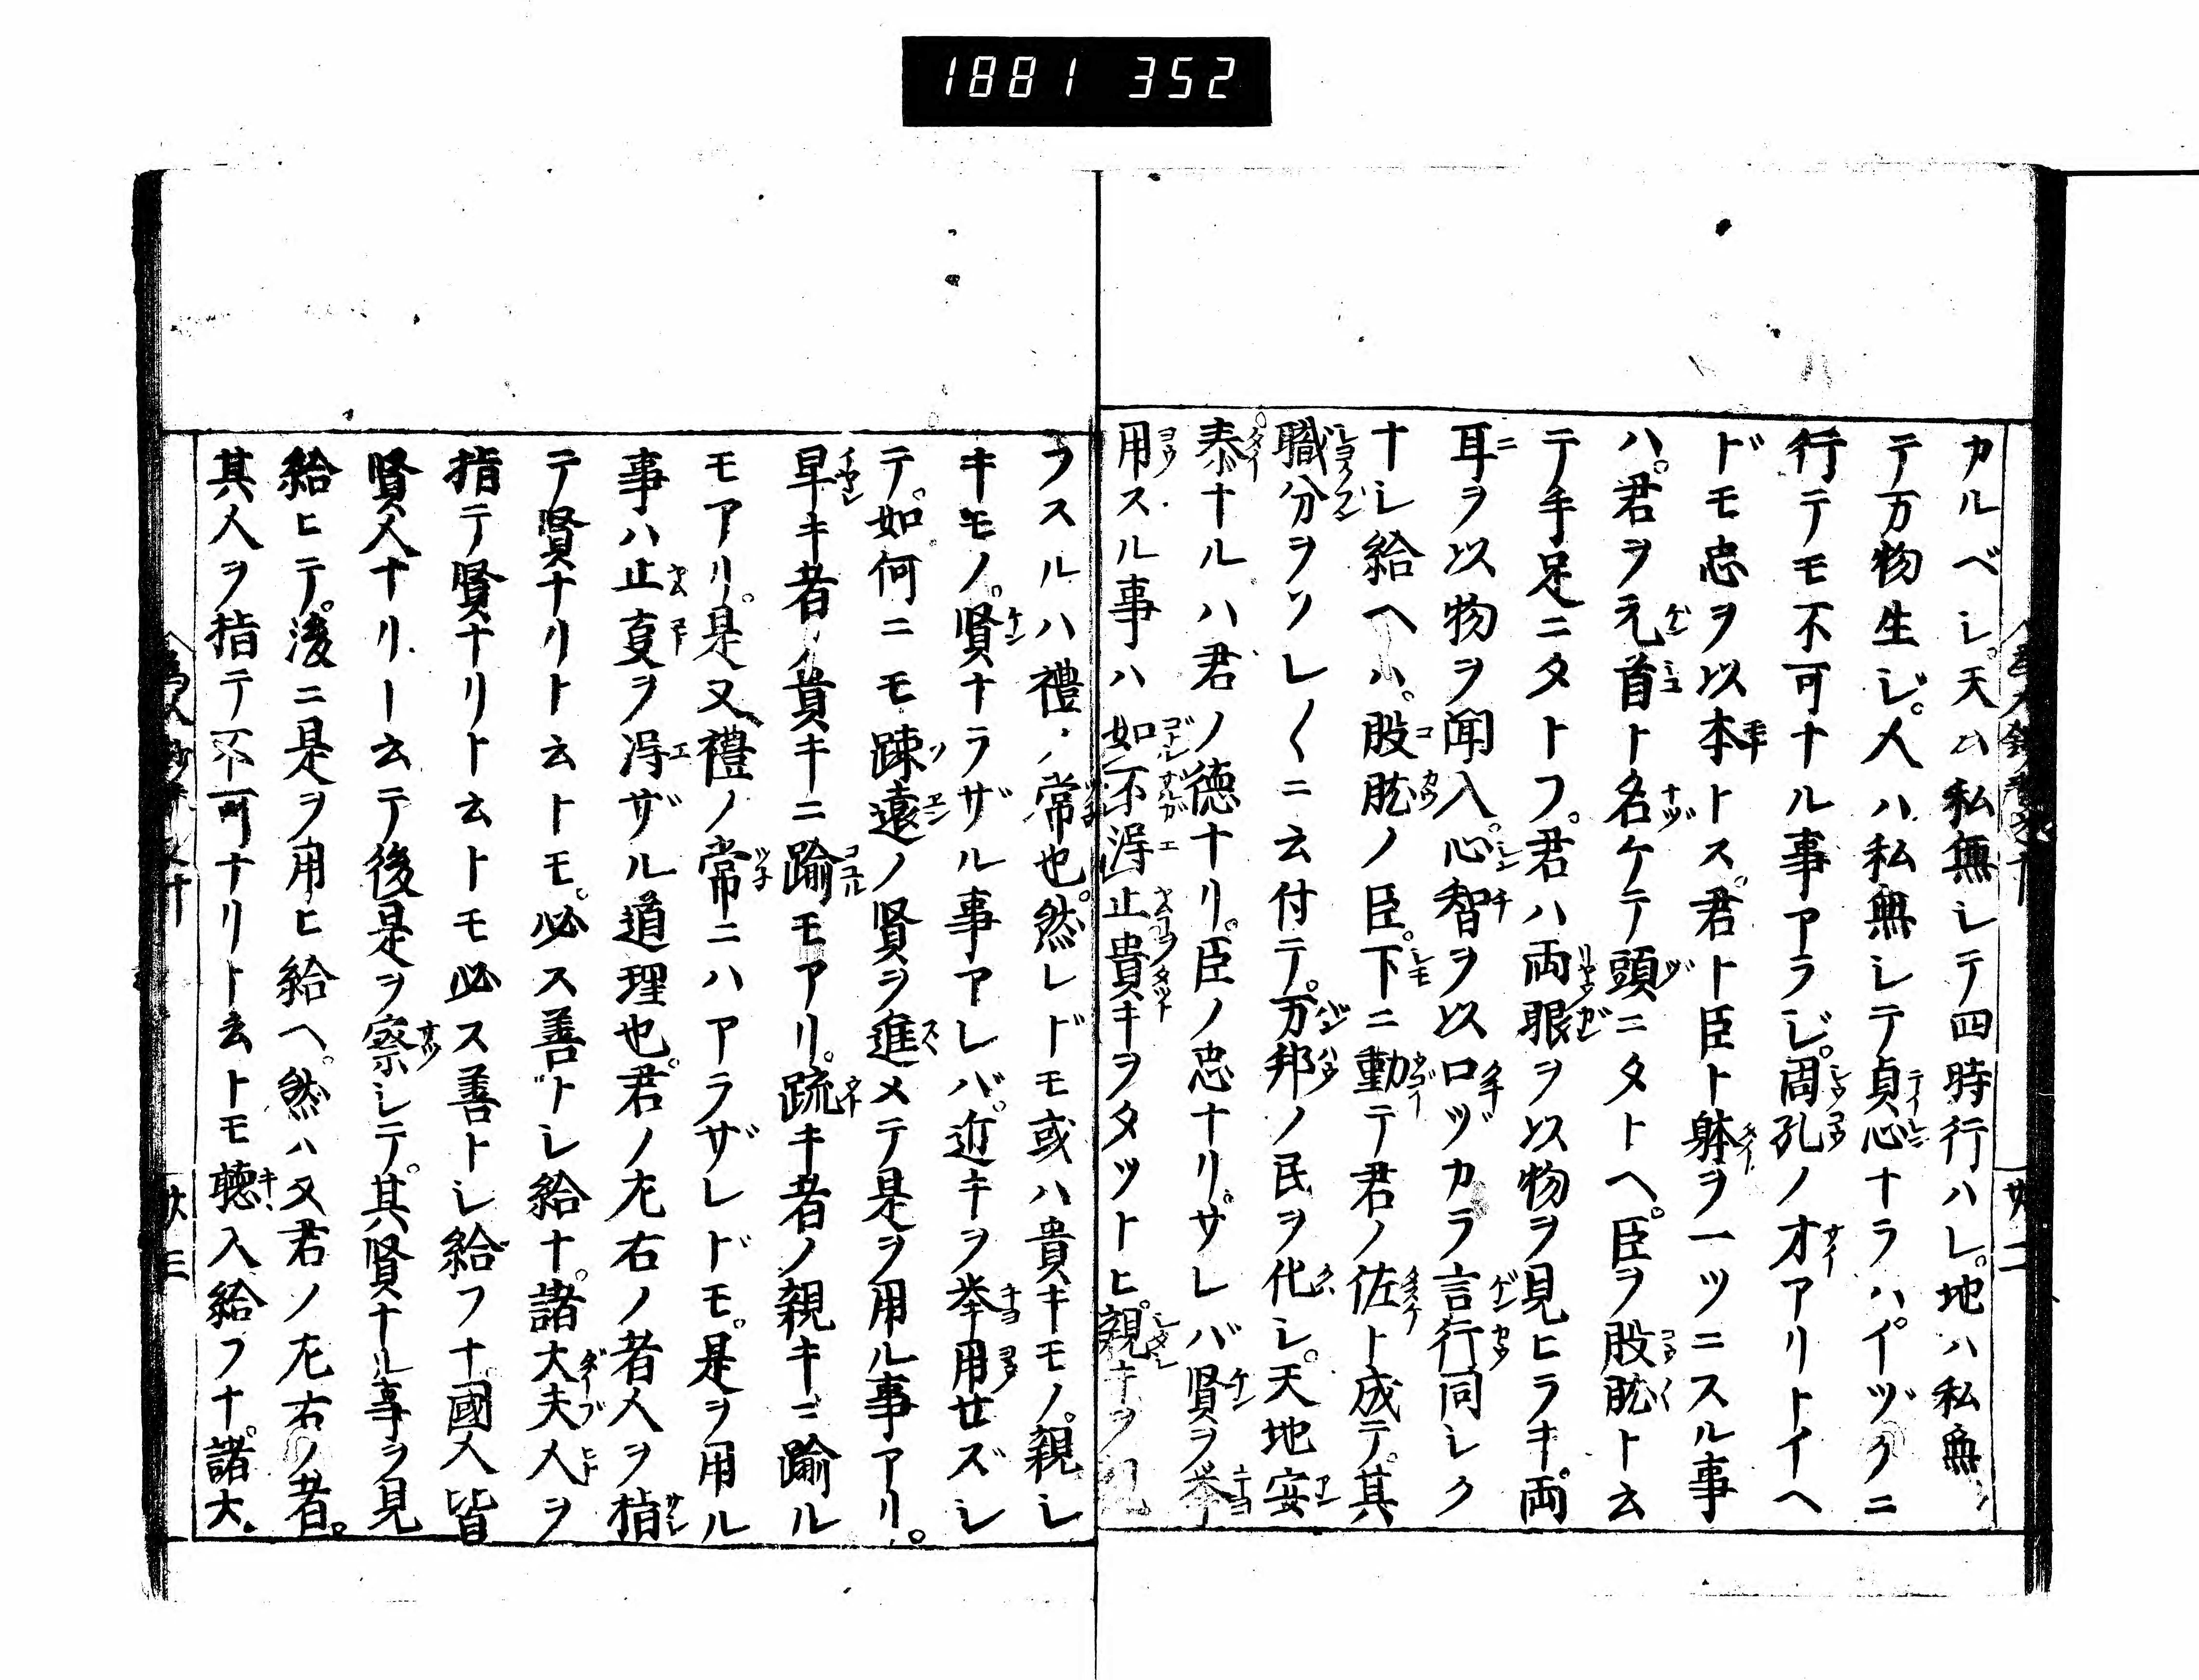 1881 352
カルベシ。天ハ私無シテ四時行ハレ。地ハ私無
テ万物生ジ。人ハ私無シテ貞心ナラハイヅクニ
行テモ不可ナル事アラジ。周孔ノ才アリトイヘ
ドモ忠ヲ以本トス。君ト臣ト躰ヲ一ツニスル事
ハ。君ヲ元首ト名ケテ頭ニタトヘ。臣ヲ股肱ト云
テ手足ニタトフ。君ハ両眼ヲ以物ヲ見ヒラキ。両
耳ヲ以物ヲ聞入。心智ヲ以口ヅカラ言行同シク
ナシ給ヘハ。股肱ノ臣。下ニ動テ君ノ佐ト成テ。其
職分ヲソレ〱ニ云付テ。万邦ノ民ヲ化シ。天地安
泰ナルハ君ノ徳ナリ。臣ノ忠ナリ。サレバ賢ヲ挙
用スル事ハ如不得止貴キヲタットヒ。親キヲ
フスルハ禮ノ常也。然レドモ或ハ貴キモノ。親シ
キモノ。賢ナラザル事アレバ。近キヲ挙用せズシ
テ。如何ニモ疎遠ノ賢ヲ進メテ是ヲ用ル事アリ。
卑キ者ノ貴キニ踰モアリ。疏キ者ノ親キニ踰ル
モアリ。是又禮ノ常ニハアラザレドモ。是ヲ用ル
事ハ止夏ヲ得ザル道理也。君ノ左右ノ者人ヲ指
テ賢ナリト云トモ。必ス善トシ給ナ。諸大夫人ヲ
指テ賢ナリト云トモ必ス善トシ給フナ。國人皆
賢人ナリート云テ後是ヲ察シテ。其賢ナル事ヲ見
給ヒテ。後ニ是ヲ用ヒ給ヘ。然ハ又君ノ左右ノ者。
其人ヲ指テ不可ナリト云トモ聴入給フナ。諸大
廿二
廿三